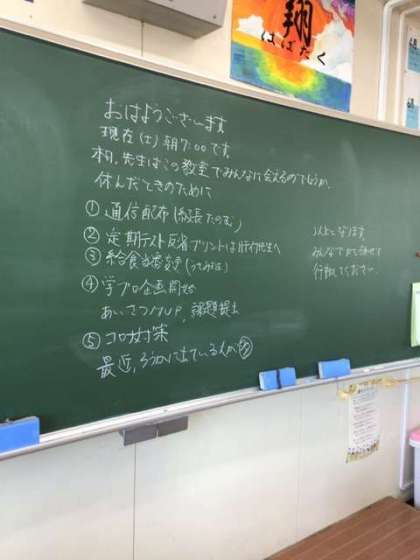 翔
はばたく
おはようございます
現在(土)朝7:00です
本村先生はこの教室でみんなに会えるのでしょうか。
休んだときのために
① 通信配布
② 定期テスト反省プリントは
③ 給食当番
④ 学プロ企画開始
あいさつ 課題提出
⑤ コロナ対策
最近、ろうかに出ている人が多
以上となります
みんなで
行動してください。